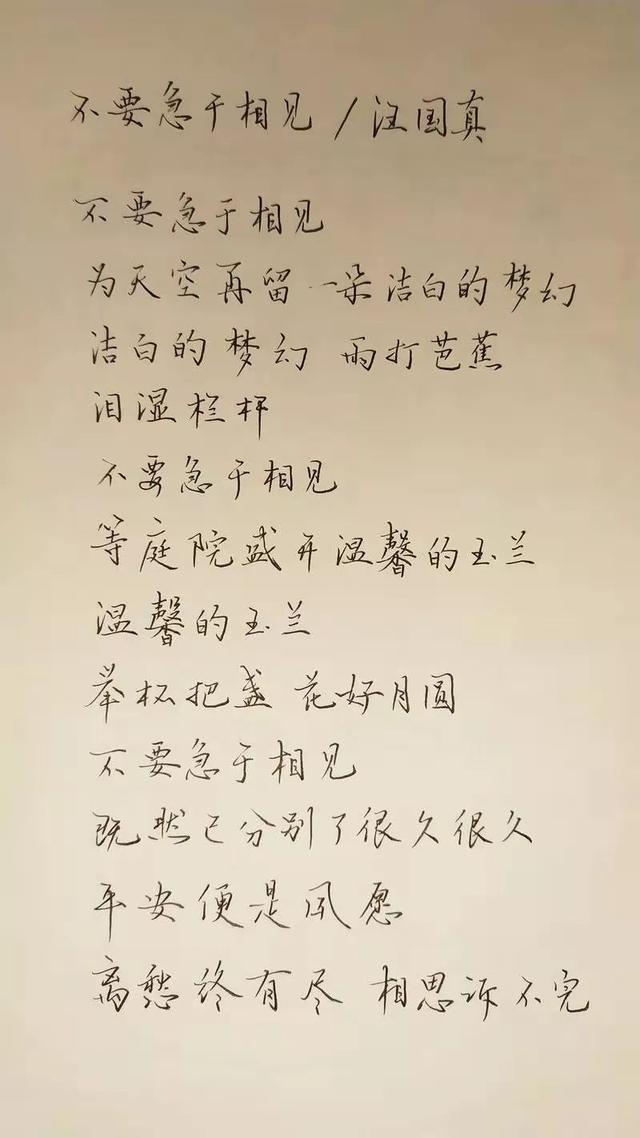 不要急于相见 / 汪国真
不要急于相见
为天空再留一朵洁白的梦幻
洁白的梦幻 雨打芭蕉
泪湿栏杆
不要急于相见
等庭院盛开温馨的玉兰
温馨的玉兰
举杯把盏 花好月圆
不要急于相见
既然已分别了很久很久
平安便是夙愿
离愁终有尽 相思诉不完